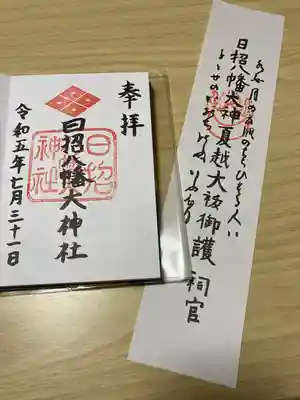 奉拝
日招八幡大神社
日招
神社
令和五年七月三十一日
日招八幡大神夏越大祓御護 祠官